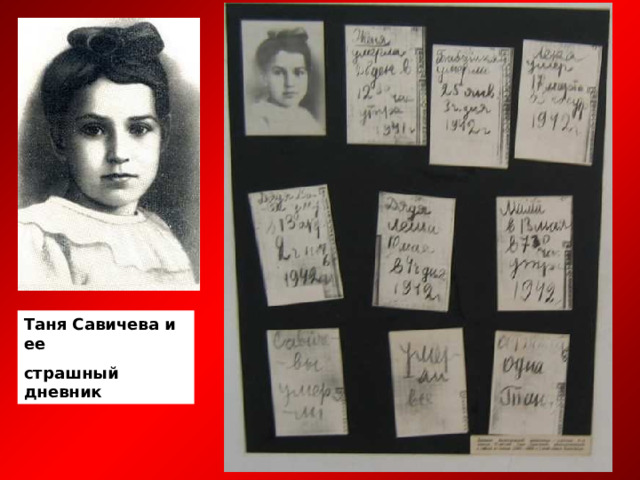 Таня Савичева и
ее
страшный
дневник
Женя
умерла
28 дек в
12 30 час
утра
1941 г
Бабушка
умерла
25 янв
3 ч дня
1942 г
Лека
умер
17 марта
в 5 час утр
1942 г
Дядя Ва
ся ум
в 13 апр
2 ч ноч
1942 г
Дядя
Леша
10 мая
в 4 ч дня
1942 г
Мама
в 13 мая
в 7 30 час
утра
1942
Савиче
-вы
умер
-ли
умер
-ли
все
одна
Таня